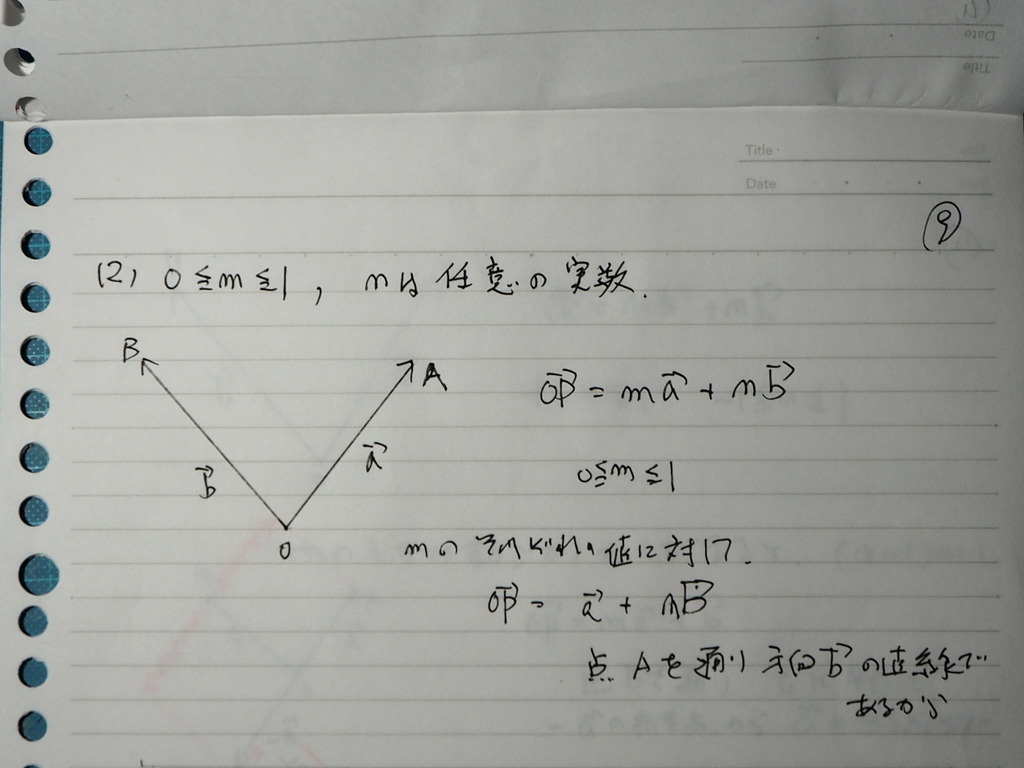 Title
Date
⑨
(2) 0≦m≦1, nは任意の実数.
B
A
b→
a→
O
OP→ = ma→ + nb→
0≦m≦1
mのそれぞれの値に対して.
OP→ = a→ + nb→
点Aを通り方向b→の直線で
あるから